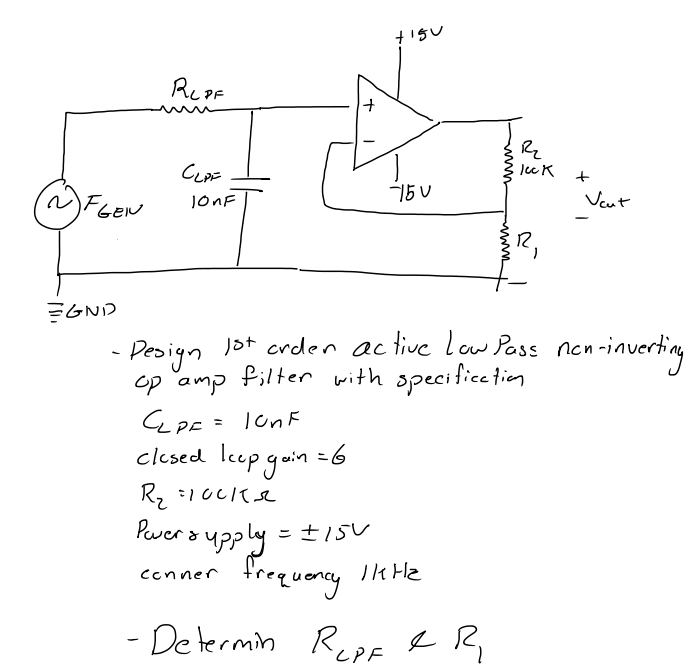 +15V
R_LPF
+
-
R2
100K
C_LPF
10nF
-15V
+
Vout
-
~ F_GEN
R1
-
GND
- Design 1st order active Low Pass non-inverting
op amp filter with specification
C_LPF = 10nF
closed loop gain = 6
R2 = 100KΩ
Power supply = ±15V
conner frequency 1kHz
- Determin R_LPF & R1